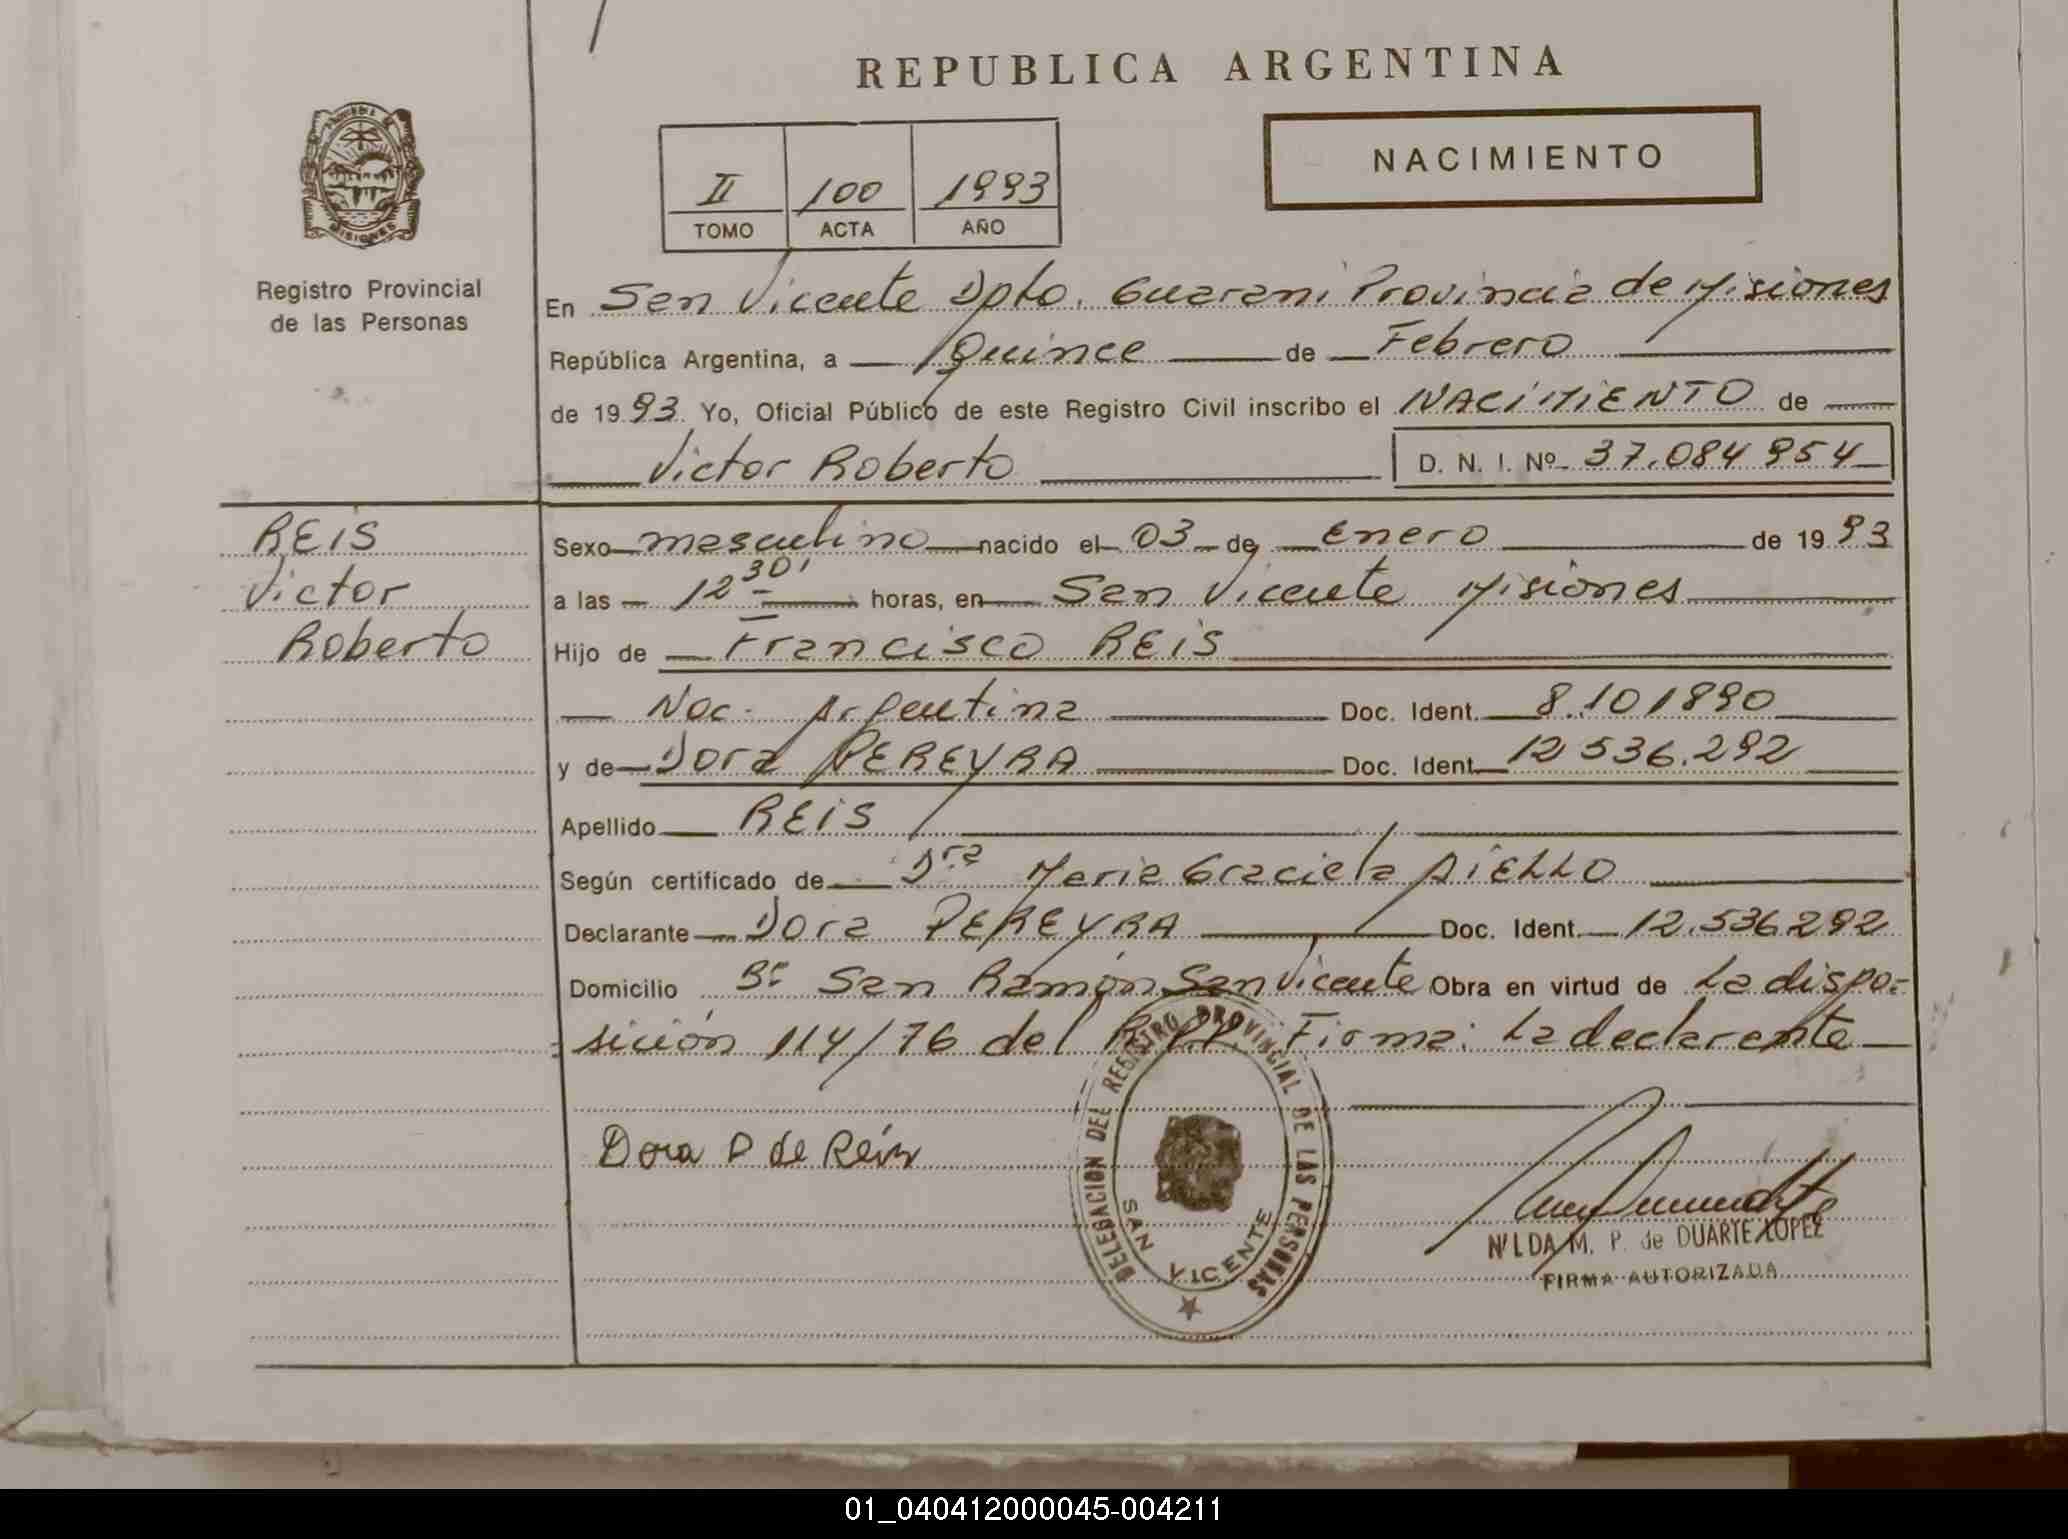 REPUBLICA ARGENTINA
NACIMIENTO
II 100 1993
TOMO ACTA AÑO
MISIONES
Registro Provincial
de las Personas
En San Vicente Dpto. Guarani Provincia de Misiones
República Argentina, a Quince de Febrero
de 1993. Yo, Oficial Público de este Registro Civil inscribo el NACIMIENTO de
Victor Roberto D. N. I. Nº 37.084 954
REIS
Victor
Roberto
Sexo masculino nacido el 03 de Enero de 1993
a las 12 30' horas, en San Vicente Misiones
Hijo de Francisco REIS
Nac. Argentina Doc. Ident. 8.101890
y de Dora PEREYRA Doc. Ident. 12 536.292
Apellido REIS
Según certificado de Dra Maria Graciela AIELLO
Declarante Dora PEREYRA Doc. Ident. 12.536.292
Domicilio Bº San Ramón San Vicente Obra en virtud de La dispo-
sición 114/76 del R.P.P. Firma: La declarante
Dora P de Reis
DELEGACION DEL REGISTRO PROVINCIAL DE LAS PERSONAS
SAN VICENTE
NILDA M. P. de DUARTE LOPEZ
FIRMA AUTORIZADA
01_040412000045-004211